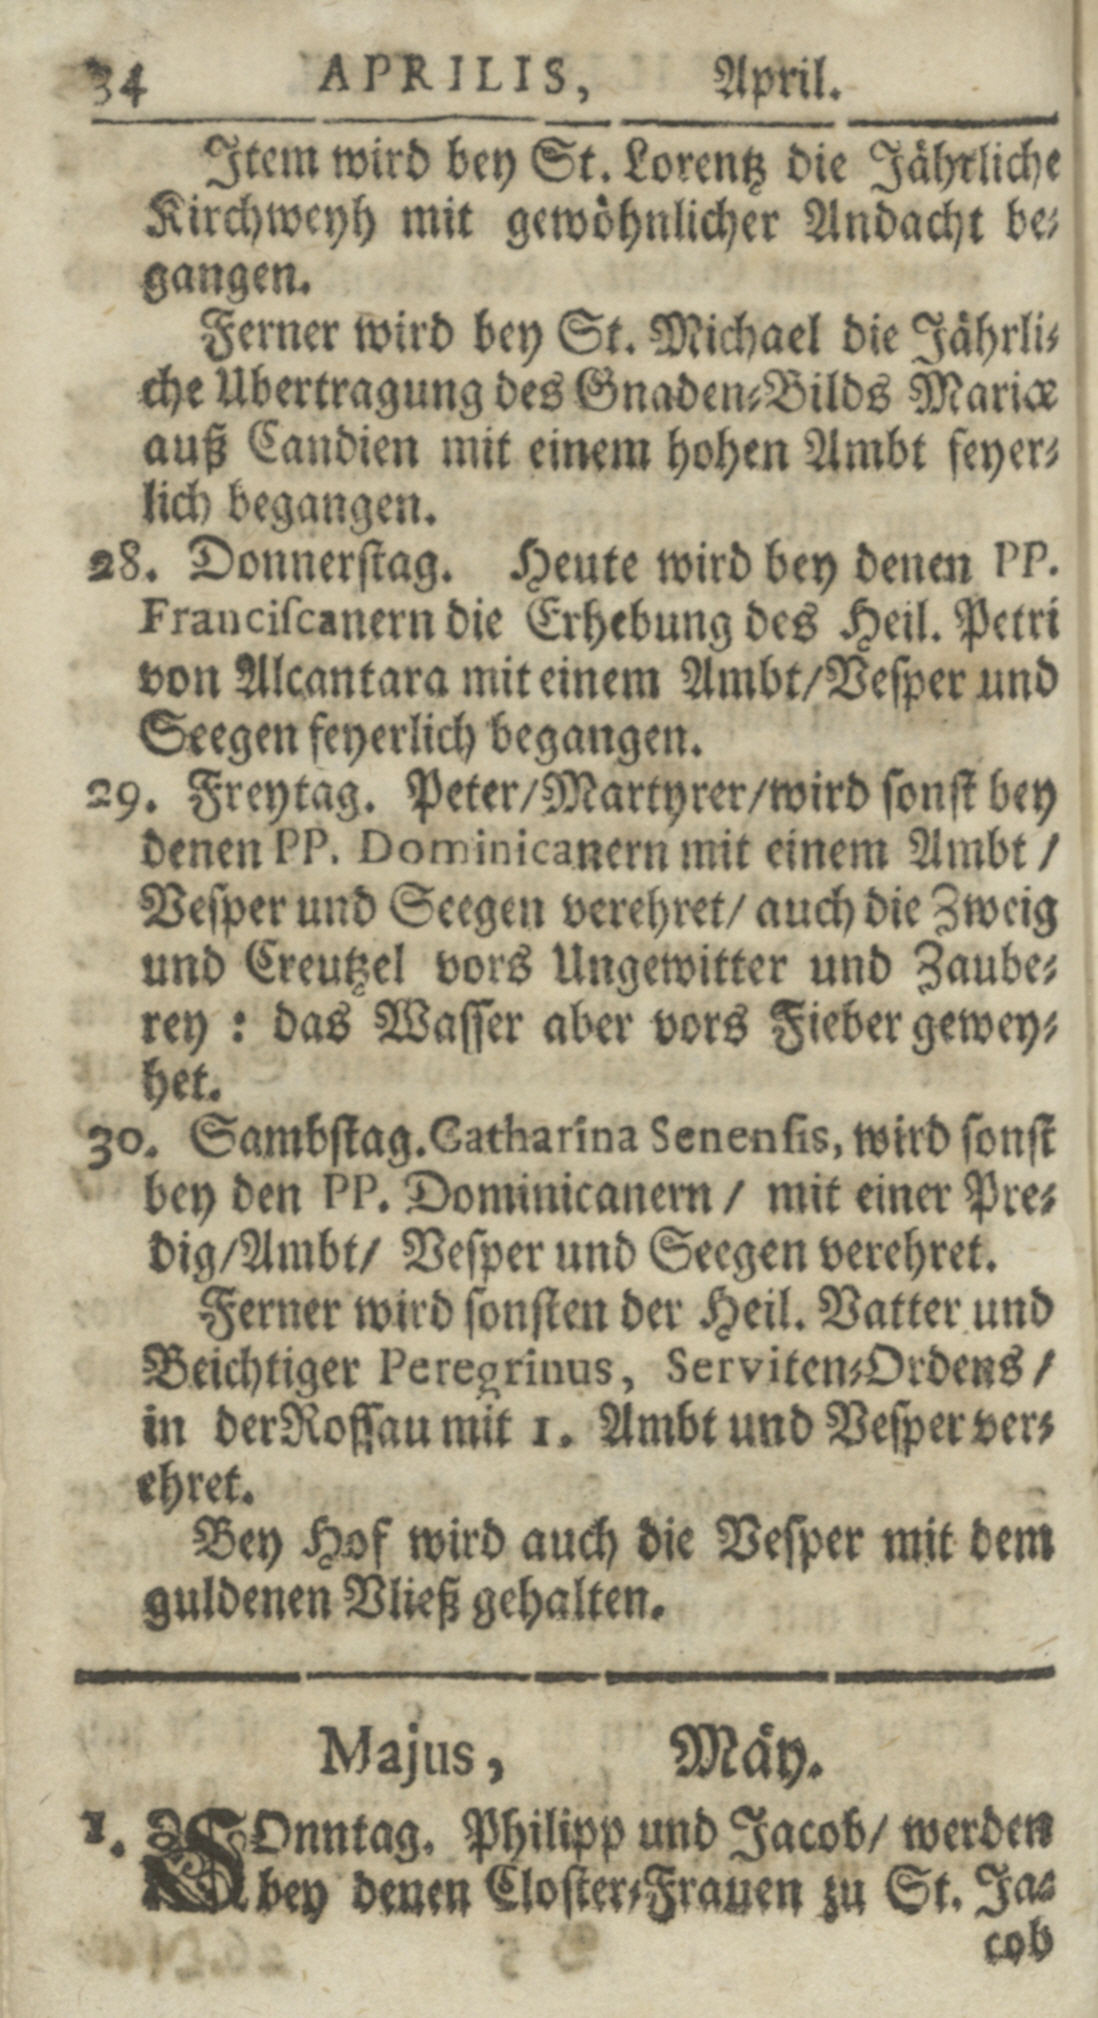 34 APRILIS, April.
Item wird bey St. Lorentz die Jährliche
Kirchweyh mit gewöhnlicher Andacht be-
gangen.
Ferner wird bey St. Michael die Jährli-
che Ubertragung des Gnaden-Bilds Mariæ
auß Candien mit einem hohen Ambt feyer-
lich begangen.
28. Donnerstag. Heute wird bey denen PP.
Franciscanern die Erhebung des Heil. Petri
von Alcantara mit einem Ambt/Vesper und
Seegen feyerlich begangen.
29. Freytag. Peter/Martyrer/wird sonst bey
denen PP. Dominicanern mit einem Ambt /
Vesper und Seegen verehret/ auch die Zweig
und Creutzel vors Ungewitter und Zaube-
rey : das Wasser aber vors Fieber gewey-
het.
30. Sambstag. Catharina Senensis, wird sonst
bey den PP. Dominicanern / mit einer Pre-
dig/Ambt/ Vesper und Seegen verehret.
Ferner wird sonsten der Heil. Vatter und
Beichtiger Peregrinus, Serviten-Ordens /
in der Rossau mit 1. Ambt und Vesper ver-
ehret.
Bey Hof wird auch die Vesper mit dem
guldenen Vließ gehalten.
Majus, Mäy.
1. SOnntag. Philipp und Jacob/ werden
bey denen Closter-Frauen zu St. Ja-
cob